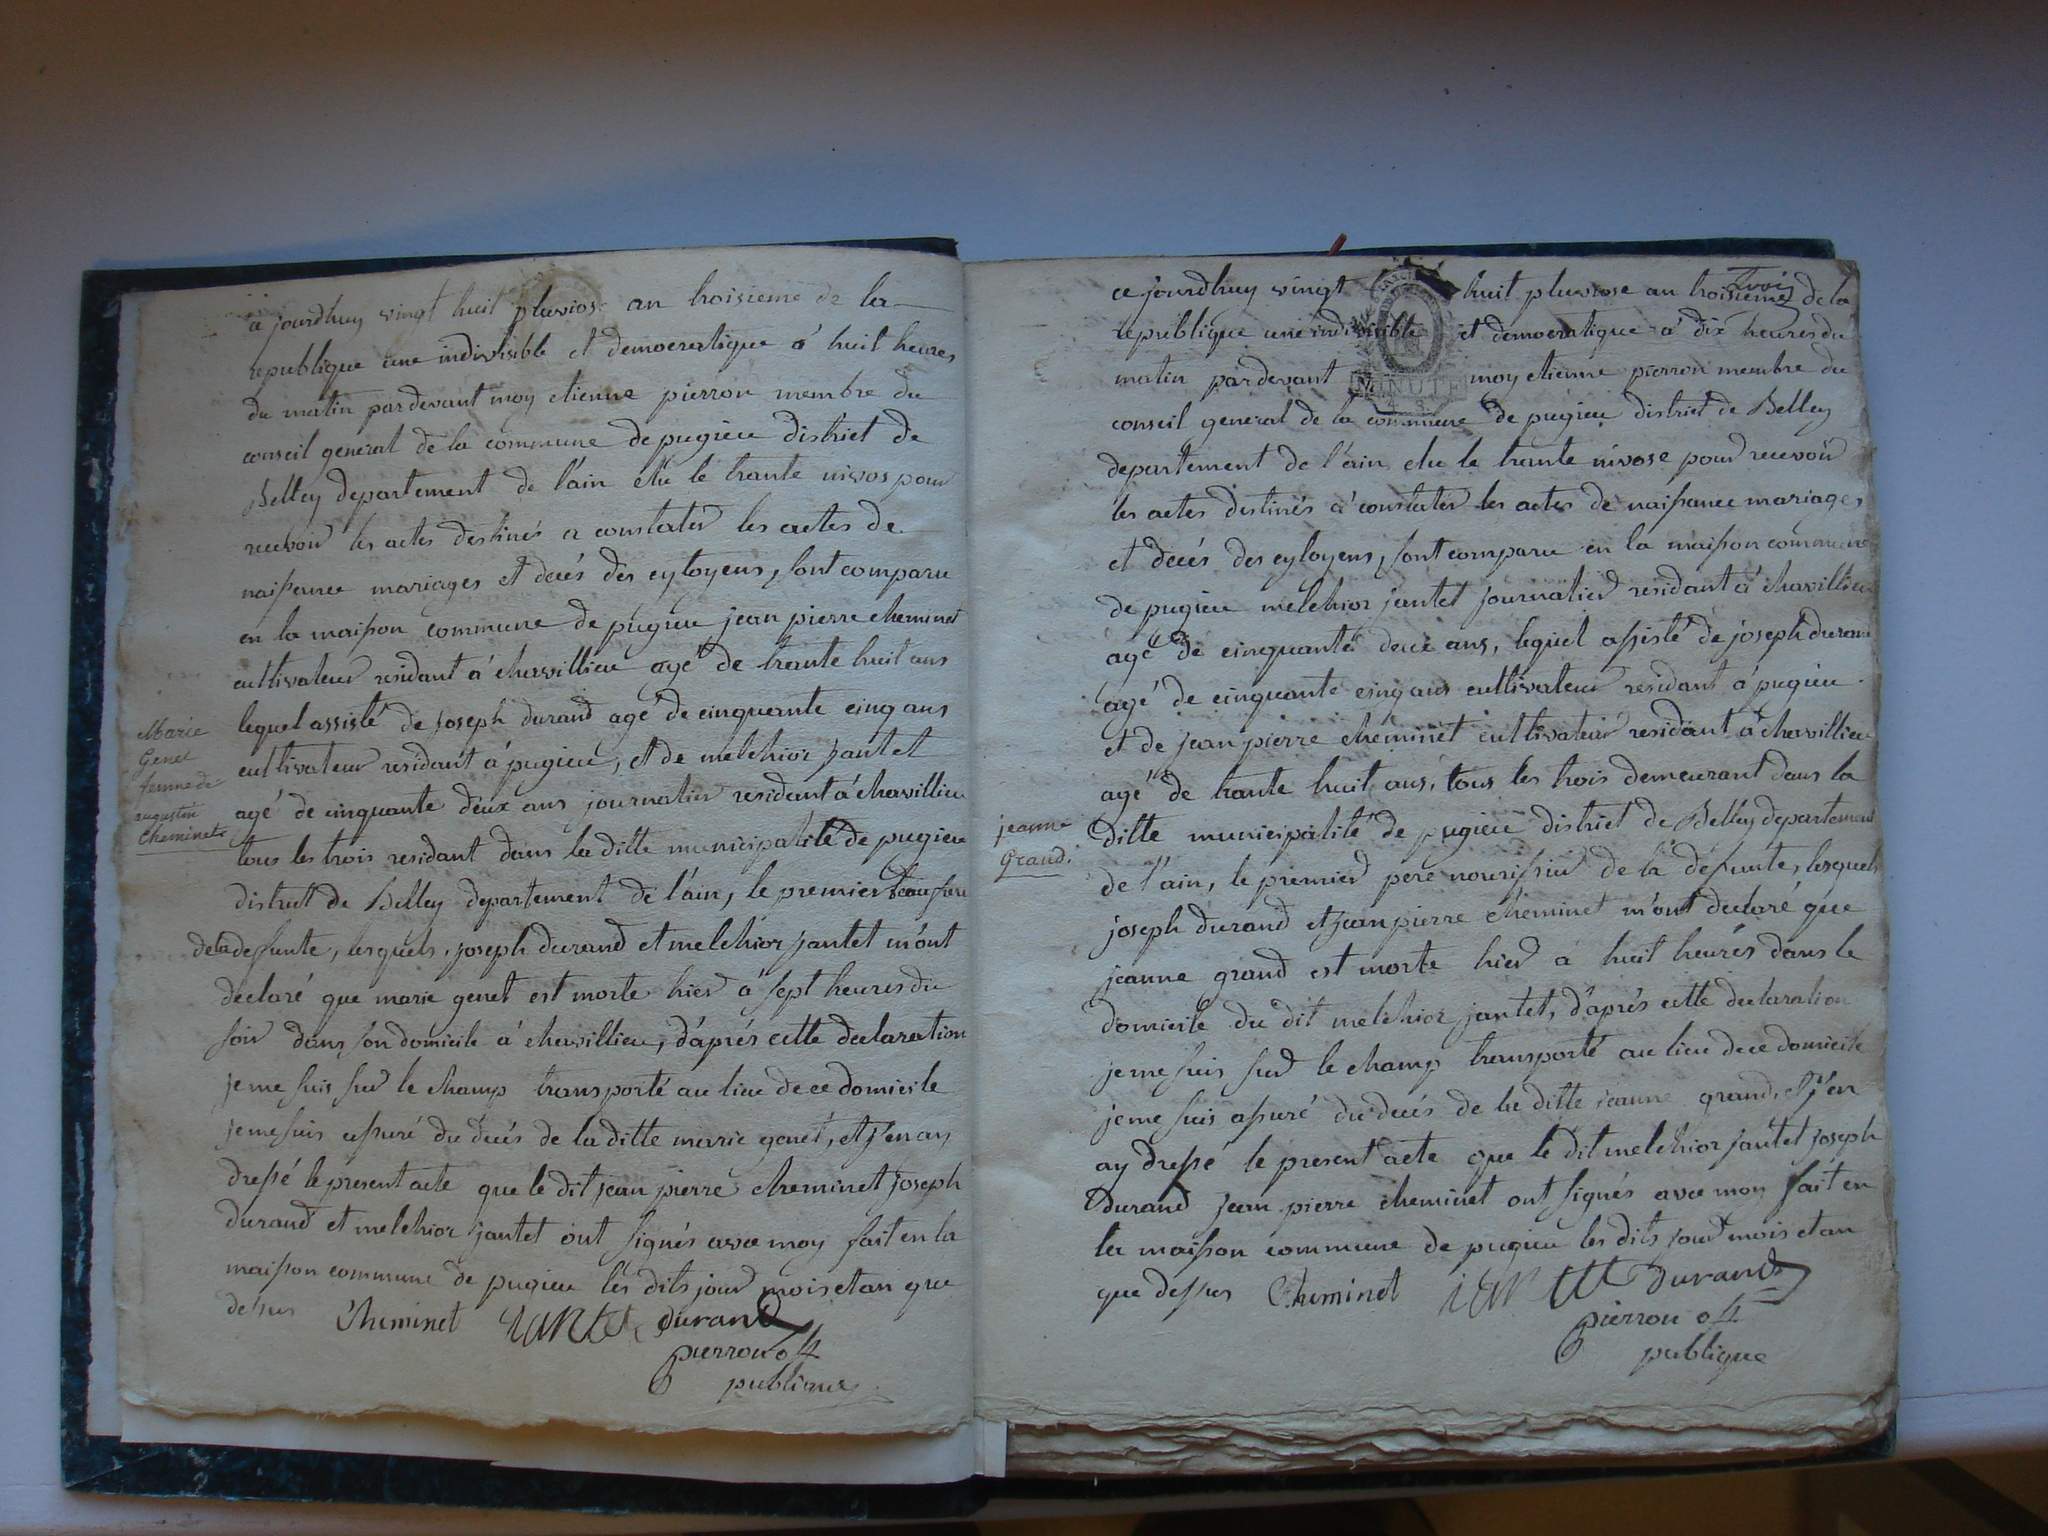 ce jourdhuy vingt huit pluviose an troisieme de la
republique une indivisible et democratique á huit heures
du matin pardevant moy etienne pierron membre du
conseil general de la commune de pugieu district de
Belley departement de l'ain elu le trante nivos pour
recevoir les actes destinés a constater les actes de
naissance mariages et decés des cytoyens, sont comparu
en la maison commune de pugieu jean pierre cheminet
cultivateur residant á chavillieu agé de trante huit ans
lequel assisté de joseph durand agé de cinquante cinq ans
cultivateur residant á pugieu, et de melchior jantet
agé de cinquante deux ans journalier residant á chavillieu
tous les trois residant dans la ditte municipalité de pugieu
district de Belley departement de l'ain, le premier beaufrere
de la defunte, lesquels, joseph durand et melchior jantet m'ont
declaré que marie genet est morte hier á sept heures du
soir dans son domicile á chavillieu, d'aprés cette declaration
je me suis sur le champ transporté au lieu de ce domicile
je me suis assuré du decés de la ditte marie genet, et j'en ay
dressé le present acte que le dit jean pierre cheminet joseph
durand et melchior jantet ont signés avec moy fait en la
maison commune de pugieu les dits jour mois et an que
dessus Cheminet JANtet durand
pierron off
publique
Marie
Genet
femme de
augustin
Cheminet
trois
ce jourdhuy vingt huit pluviose an troisieme de la
republique une indivisible et democratique á dix heures du
matin pardevant moy etienne pierron membre du
MINUTE
conseil general de la commune de pugieu district de Belley
departement de l'ain elu le trante nivose pour recevoir
les actes destinés á constater les actes de naissance mariages
et decés des cytoyens, sont comparu en la maison commune
de pugieu melchior jantet journalier residant á chavillieu
agé de cinquante deux ans, lequel assisté de joseph durand
agé de cinquante cinq ans cultivateur residant á pugieu
et de jean pierre cheminet cultivateur residant á chavillieu
agé de trante huit ans, tous les trois demeurant dans la
ditte municipalité de pugieu district de Belley departement
de l'ain, le premier pere nourissier de la defunte, lesquels
joseph durand et jean pierre cheminet m'ont declaré que
jeanne grand est morte hier a huit heures dans le
domicile du dit melchior jantet, d'aprés cette declaration
je me suis sur le champ transporté au lieu de ce domicile
je me suis assuré du decés de la ditte jeanne grand, et j'en
ay dressé le present acte que le dit melchior jantet joseph
durand jean pierre cheminet ont signés avec moy fait en
la maison commune de pugieu les dits jour mois et an
que dessus Cheminet JANtet durand
pierron off
publique
jeanne
grand.